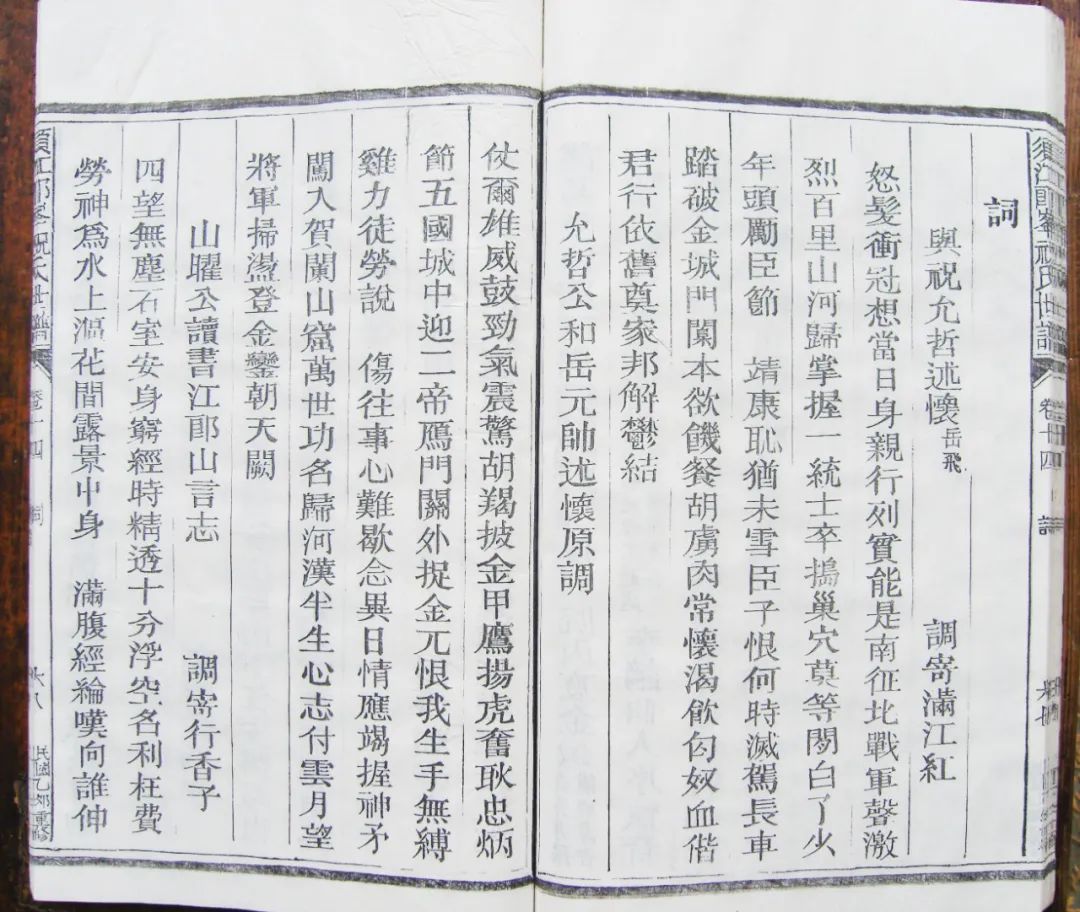 須江郎峯祝氏世譜 卷十四 詞
詞
與祝允哲述懷 岳飛 調寄滿江紅
怒髮衝冠想當日身親行列實能是南征北戰軍聲激
烈百里山河歸掌握一統士卒搗巢穴莫等閒白了少
年頭勵臣節 靖康恥猶未雪臣子恨何時滅駕長車
踏破金城門闕本欲饑餐胡虜肉常懷渴飲匈奴血偕
君行依舊奠家邦解鬱結
允哲公和岳元帥述懷原調
仗爾雄威鼓勁氣震驚胡羯披金甲鷹揚虎奮耿忠炳
節五國城中迎二帝鴈門關外捉金兀恨我生手無縛
雞力徒勞說 傷往事心難歇念異日情應竭握神矛
闖入賀闌山窟萬世功名歸河漢半生心志付雲月望
將軍掃盪登金鑾朝天闕
山曜公讀書江郎山言志 調寄行香子
四望無塵石室安身窮經時精透十分浮空名利枉費
勞神爲水上漚花間露景中身 滿腹經綸嘆向誰伸
須江郎峯祝氏世譜 卷十四 詞 民國乙卯重修